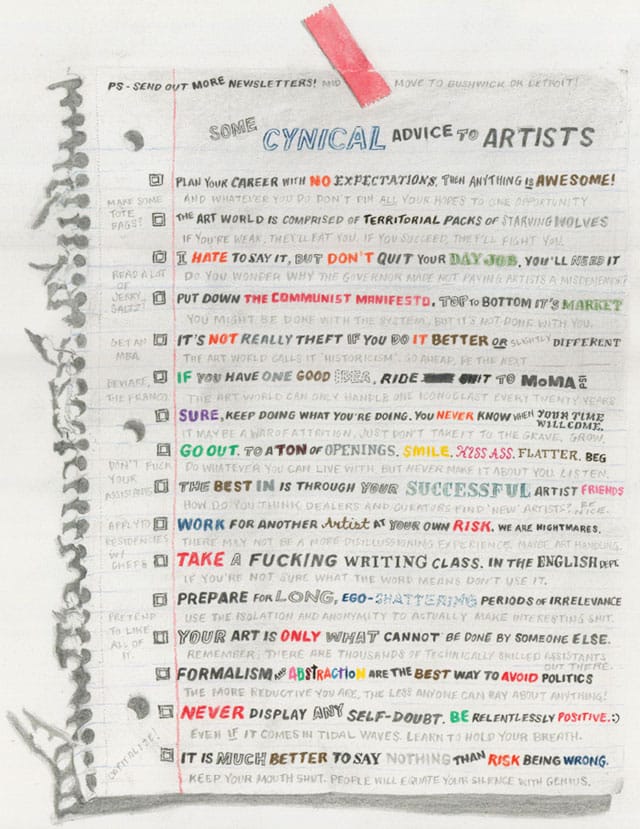 PS - SEND OUT MORE NEWSLETTERS! AND MOVE TO BUSHWICK OR DETROIT!
SOME CYNICAL ADVICE TO ARTISTS
PLAN YOUR CAREER WITH NO EXPECTATIONS, THEN ANYTHING IS AWESOME!
AND WHATEVER YOU DO DON'T PIN ALL YOUR HOPES TO ONE OPPORTUNITY
MAKE SOME
TOTE
BAGS?
THE ART WORLD IS COMPRISED OF TERRITORIAL PACKS OF STARVING WOLVES
IF YOU'RE WEAK, THEY'LL EAT YOU. IF YOU SUCCEED, THEY'LL FIGHT YOU.
I HATE TO SAY IT, BUT DON'T QUIT YOUR DAY JOB. YOU'LL NEED IT
DO YOU WONDER WHY THE GOVERNOR MADE NOT PAYING ARTISTS A MISDEMENER?
READ A LOT
OF
JERRY
SALTZ?
PUT DOWN THE COMMUNIST MANIFESTO, TOP TO BOTTOM IT'S MARKET
YOU MIGHT BE DONE WITH THE SYSTEM, BUT IT'S NOT DONE WITH YOU.
GET AN
MBA
IT'S NOT REALLY THEFT IF YOU DO IT BETTER OR SLIGHTLY DIFFERENT
THE ART WORLD CALLS IT "HISTORICISM". GO AHEAD, BE THE NEXT
BEWARE,
THE FRANCO
IF YOU HAVE ONE GOOD IDEA, RIDE IT TO MoMA PS1
THE ART WORLD CAN ONLY HANDLE ONE ICONOCLAST EVERY TWENTY YEARS
SURE, KEEP DOING WHAT YOU'RE DOING. YOU NEVER KNOW WHEN YOUR TIME WILL COME.
IT MAY BE A WAR OF ATTRITION, JUST DON'T TAKE IT TO THE GRAVE, GROW.
GO OUT. TO A TON OF OPENINGS. SMILE. KISS ASS. FLATTER. BEG
DO WHATEVER YOU CAN LIVE WITH BUT NEVER MAKE IT ABOUT YOU. LISTEN.
DON'T FUCK
YOUR
ASSISTANTS
THE BEST IN IS THROUGH YOUR SUCCESSFUL ARTIST FRIENDS
HOW DO YOU THINK DEALERS AND CURATORS FIND "NEW" ARTISTS? BE NICE.
APPLY TO
RESIDENCIES
W/
CHEFS
WORK FOR ANOTHER Artist AT YOUR OWN RISK. WE ARE NIGHTMARES.
THERE MAY NOT BE A MORE DISILLUSIONING EXPERIENCE. MAYBE ART HANDLING.
TAKE A FUCKING WRITING CLASS. IN THE ENGLISH DEPT.
IF YOU'RE NOT SURE WHAT THE WORD MEANS DON'T USE IT.
PREPARE FOR LONG, EGO-SHATTERING PERIODS OF IRRELEVANCE
USE THE ISOLATION AND ANONYMITY TO ACTUALLY MAKE INTERESTING SHIT.
PRETEND
TO LIKE
ALL OF
IT.
YOUR ART IS ONLY WHAT CANNOT BE DONE BY SOMEONE ELSE.
REMEMBER, THERE ARE THOUSANDS OF TECHNICALLY SKILLED ASSISTANTS OUT THERE.
FORMALISM AND ABSTRACTION ARE THE BEST WAY TO AVOID POLITICS
THE MORE REDUCTIVE YOU ARE, THE LESS ANYONE CAN SAY ABOUT ANYTHING!
NEVER DISPLAY ANY SELF-DOUBT. BE RELENTLESSLY POSITIVE. :)
EVEN IF IT COMES IN TIDAL WAVES. LEARN TO HOLD YOUR BREATH.
IT IS MUCH BETTER TO SAY NOTHING THAN RISK BEING WRONG.
KEEP YOUR MOUTH SHUT. PEOPLE WILL EQUATE YOUR SILENCE WITH GENIUS.